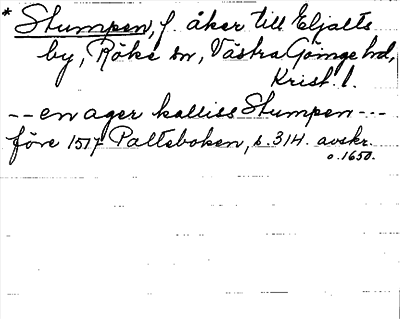 * Stumpen, f. åker till Eljalts
by, Röke sn, Västra Göinge hd,
Krist. l.
-- en ager kalliss Stumpen ---
före 1517 Paltsboken, s. 314. avskr.
o. 1650.